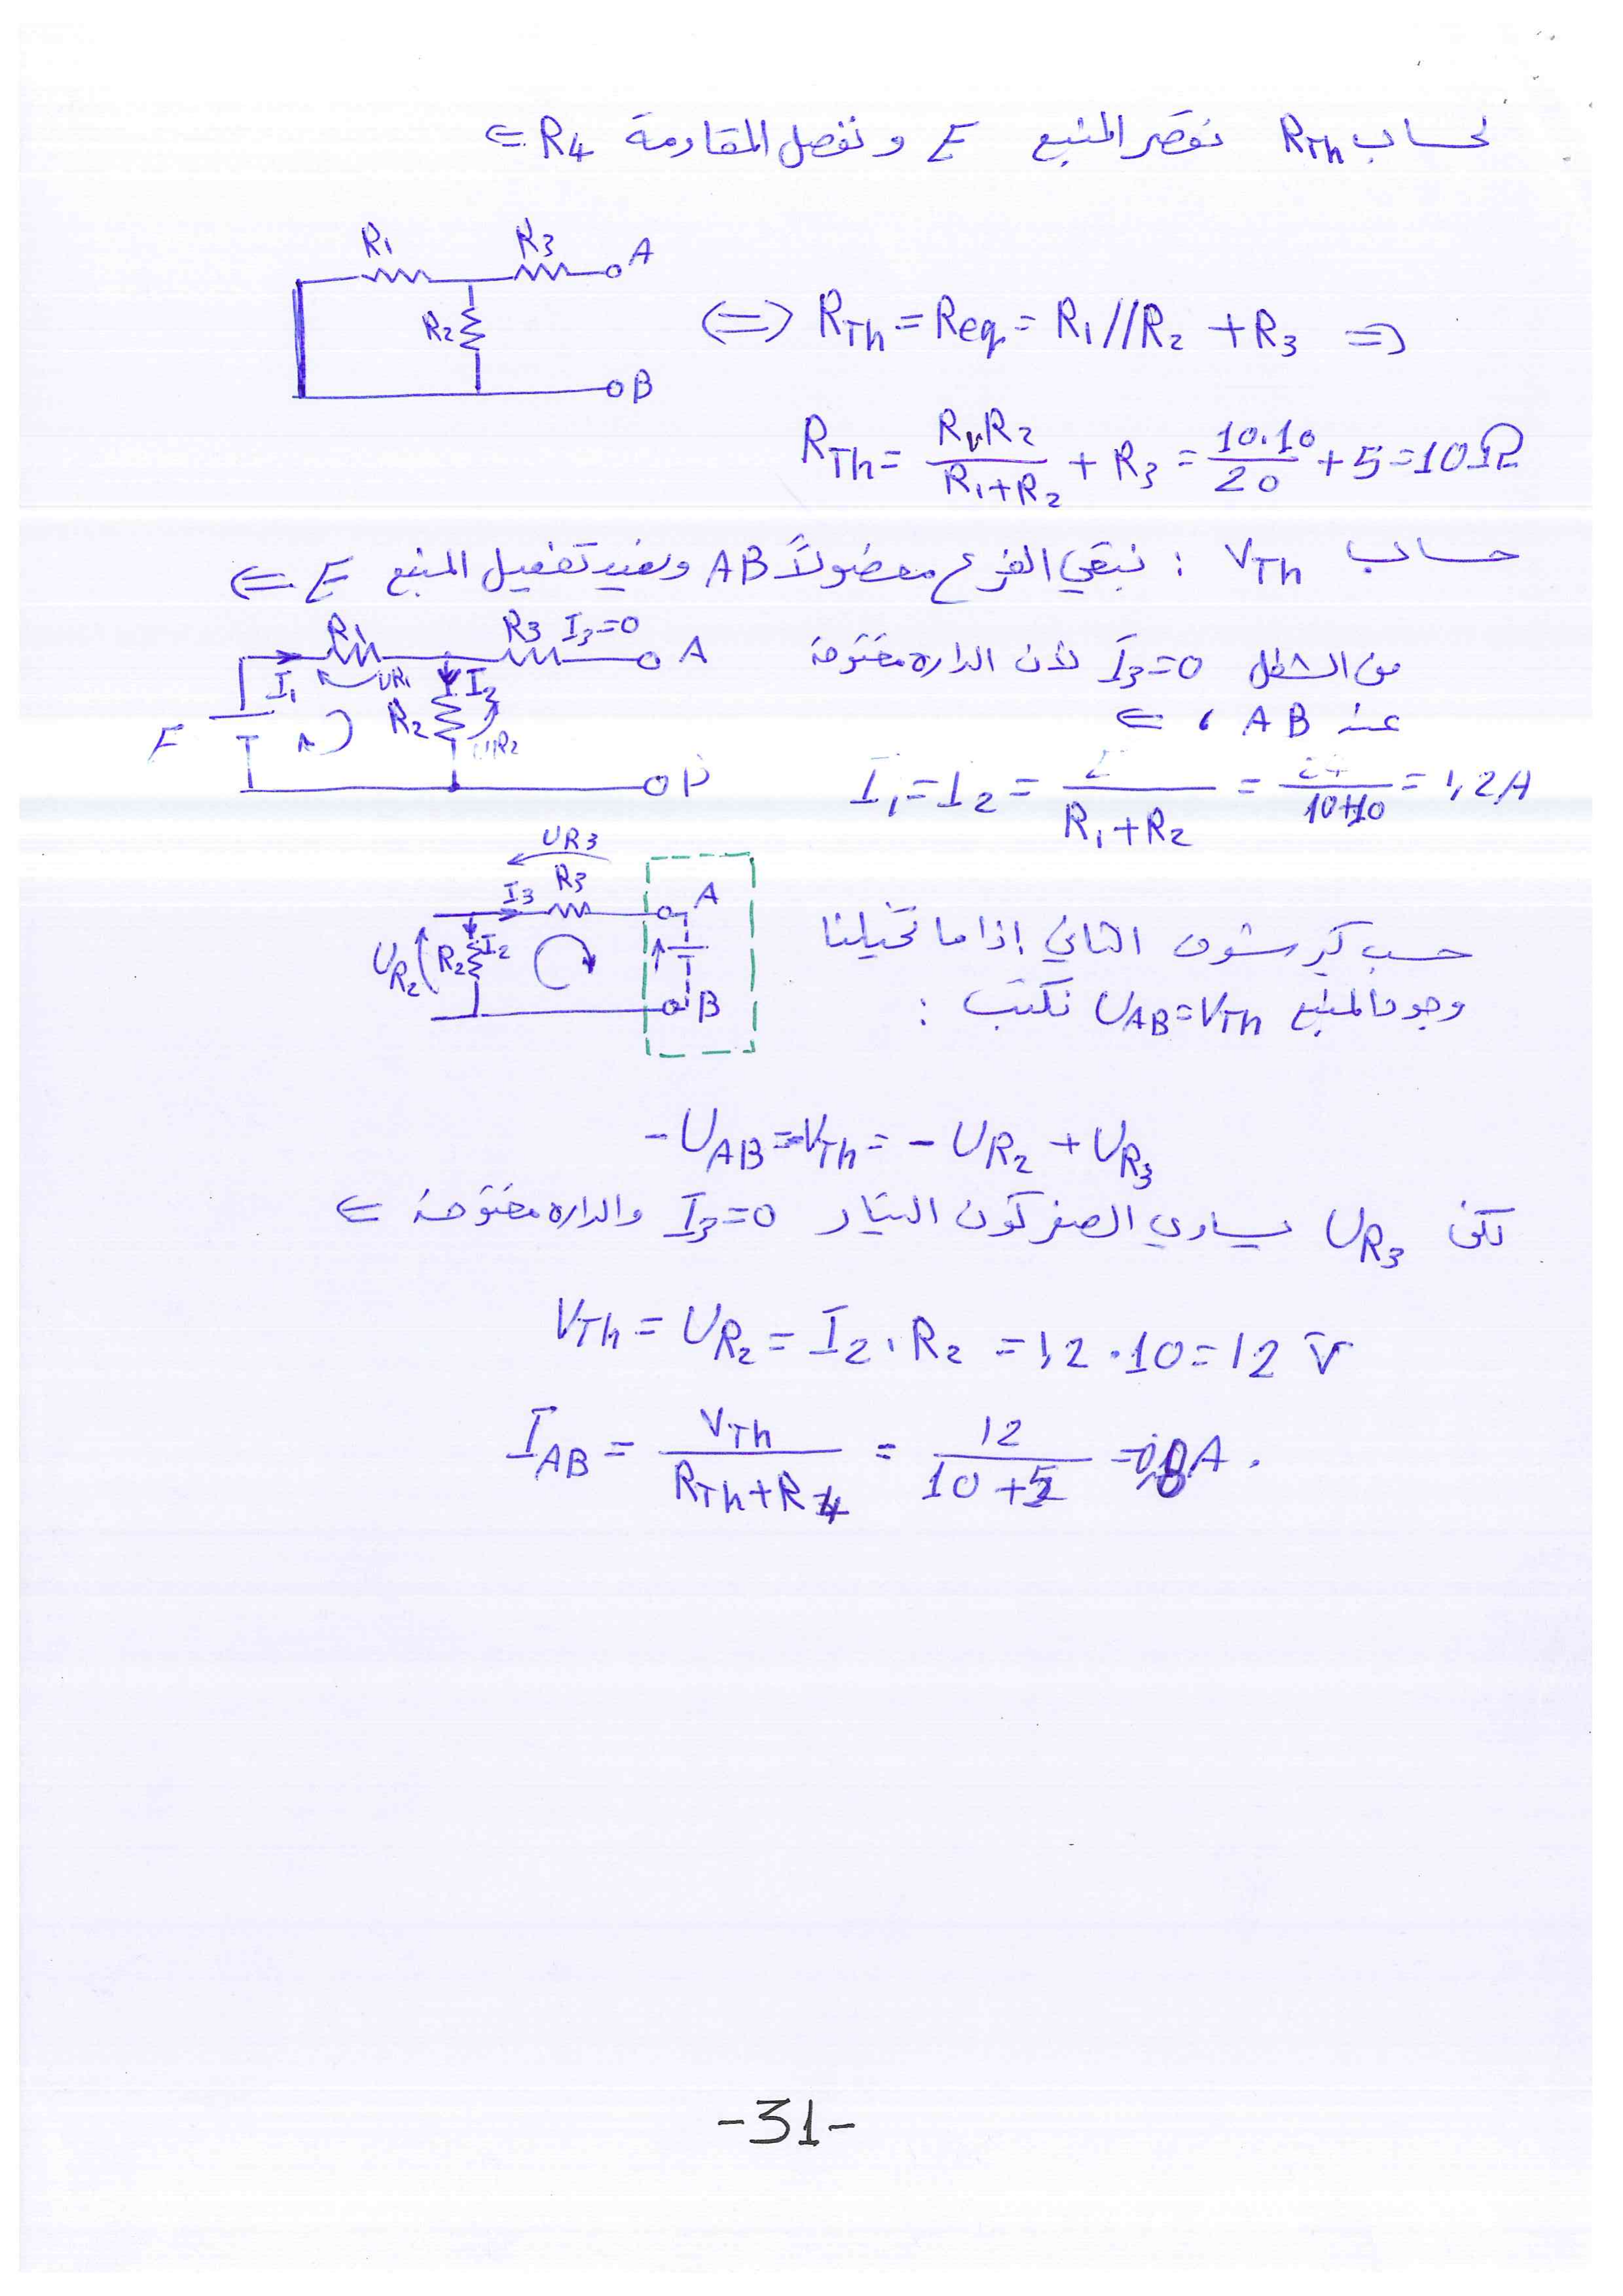 لحساب RTh نقصر المنبع E ونفصل المقاومة R4 ⇐
R1 R3 A
R2
B
(=) RTh = Req = R1//R2 + R3 =>
RTh = R1.R2 / R1+R2 + R3 = 10.10 / 20 + 5 = 10Ω
حساب VTh : نبقي الفرع مفصولاً AB ونعيد تفعيل المنبع E ⇐
R1 R3 I3=0 A
I1 UR1 I2
R2 UR2
E
B
من الشكل I3=0 لأن الدارة مفتوحة
عند AB ، ⇐
I1 = I2 = E / R1+R2 = 24 / 10+10 = 1,2A
UR3
I3 R3 A
UR2 R2 I2
B
حسب كيرشوف الثاني إذا ما تخيلنا
وجود المنبع UAB=VTh نكتب :
-UAB = -VTh = - UR2 + UR3
لكن UR3 يساوي الصفر كون التيار I3=0 والدارة مفتوحة ⇐
VTh = UR2 = I2 . R2 = 1,2 . 10 = 12 V
IAB = VTh / RTh+R4 = 12 / 10+5 = 0,8A .
-31-